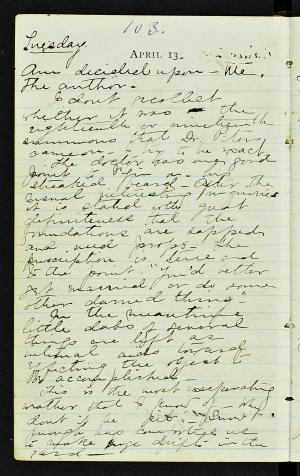 103.
Tuesday
APRIL 13.
Am decided upon - Me.
The author -
I don't recollect
whether it was the
eighteenth or nineteenth
summons that Dr.
came on - try to be exact
The doctor has one good
point to
streaked beard - After the
usual interesting inquiries
it is stated the quet
definiteness that the
foundations are sapped
and need props - The
prescription is terse and
to the point. "You'd better
get married or do some
other darned thing"
In the meantime
little dabs of general
things are left as
internal aids toward
effecting the object to
be accomplished -
This is the most exasperating
weather that I know of - Why
don't it be
to make huge drifts in the
yard -